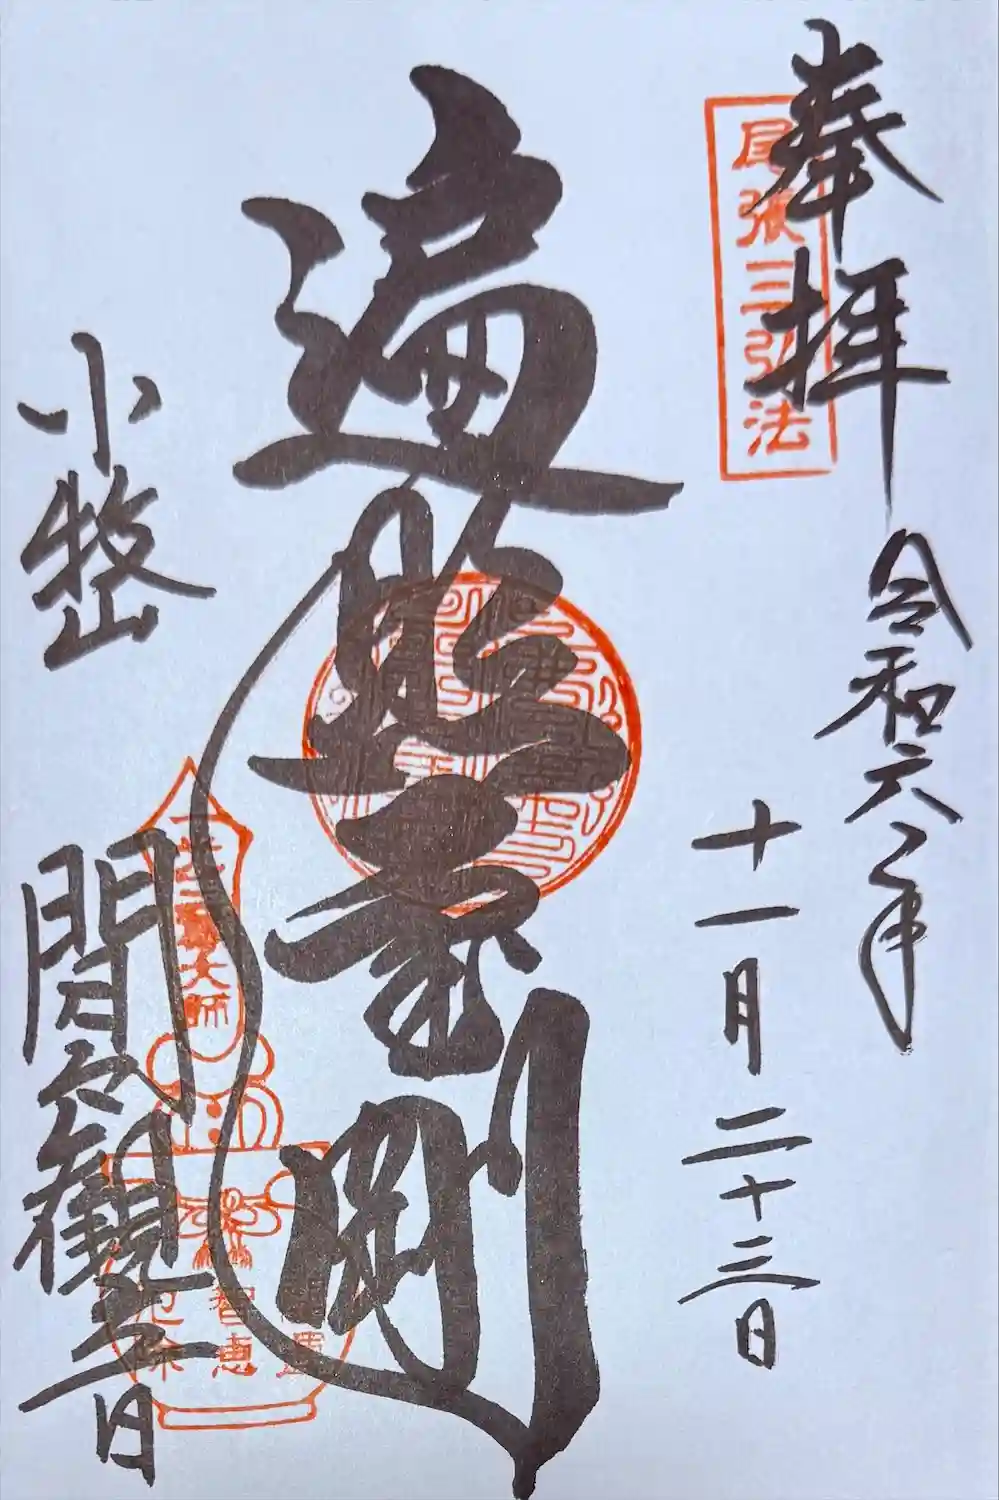 奉拝
尾張三弘法
令和六年
十一月二十三日
遍照金剛
小牧山
間々觀音
大師
智恵
厄除